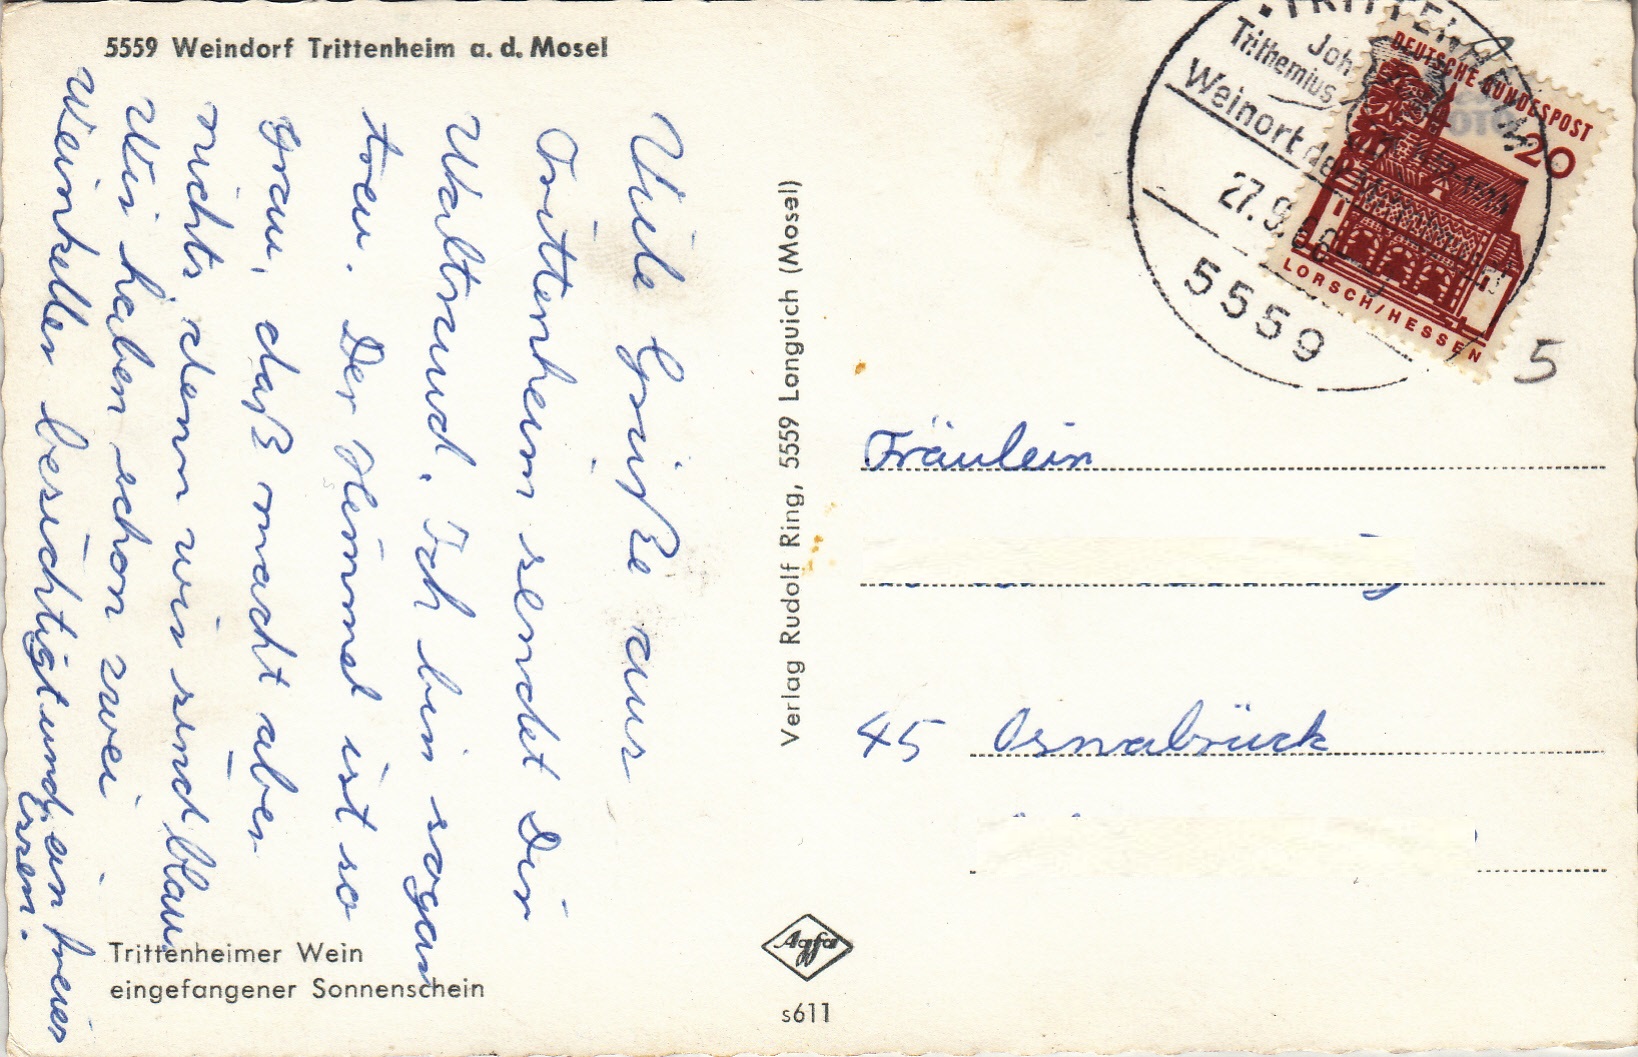 5559 Weindorf Trittenheim a. d. Mosel
Viele Grüße aus
Trittenheim sendet Dir
Waltraud. Ich bin sogar
treu. Der Himmel ist so
grau, daß macht aber
nichts, denn wir sind blau
Wir haben schon zwei
Weinkeller besichtigt und ein freies
Essen.
Trittenheimer Wein
eingefangener Sonnenschein
Verlag Rudolf Ring, 5559 Longuich (Mosel)
Agfa
s611
TRITTENHEIM
Joh.
Trithemius
Weinort der
27.9.66
5559
DEUTSCHE BUNDESPOST
20
LORSCH/HESSEN
5
Fräulein
45 Osnabrück